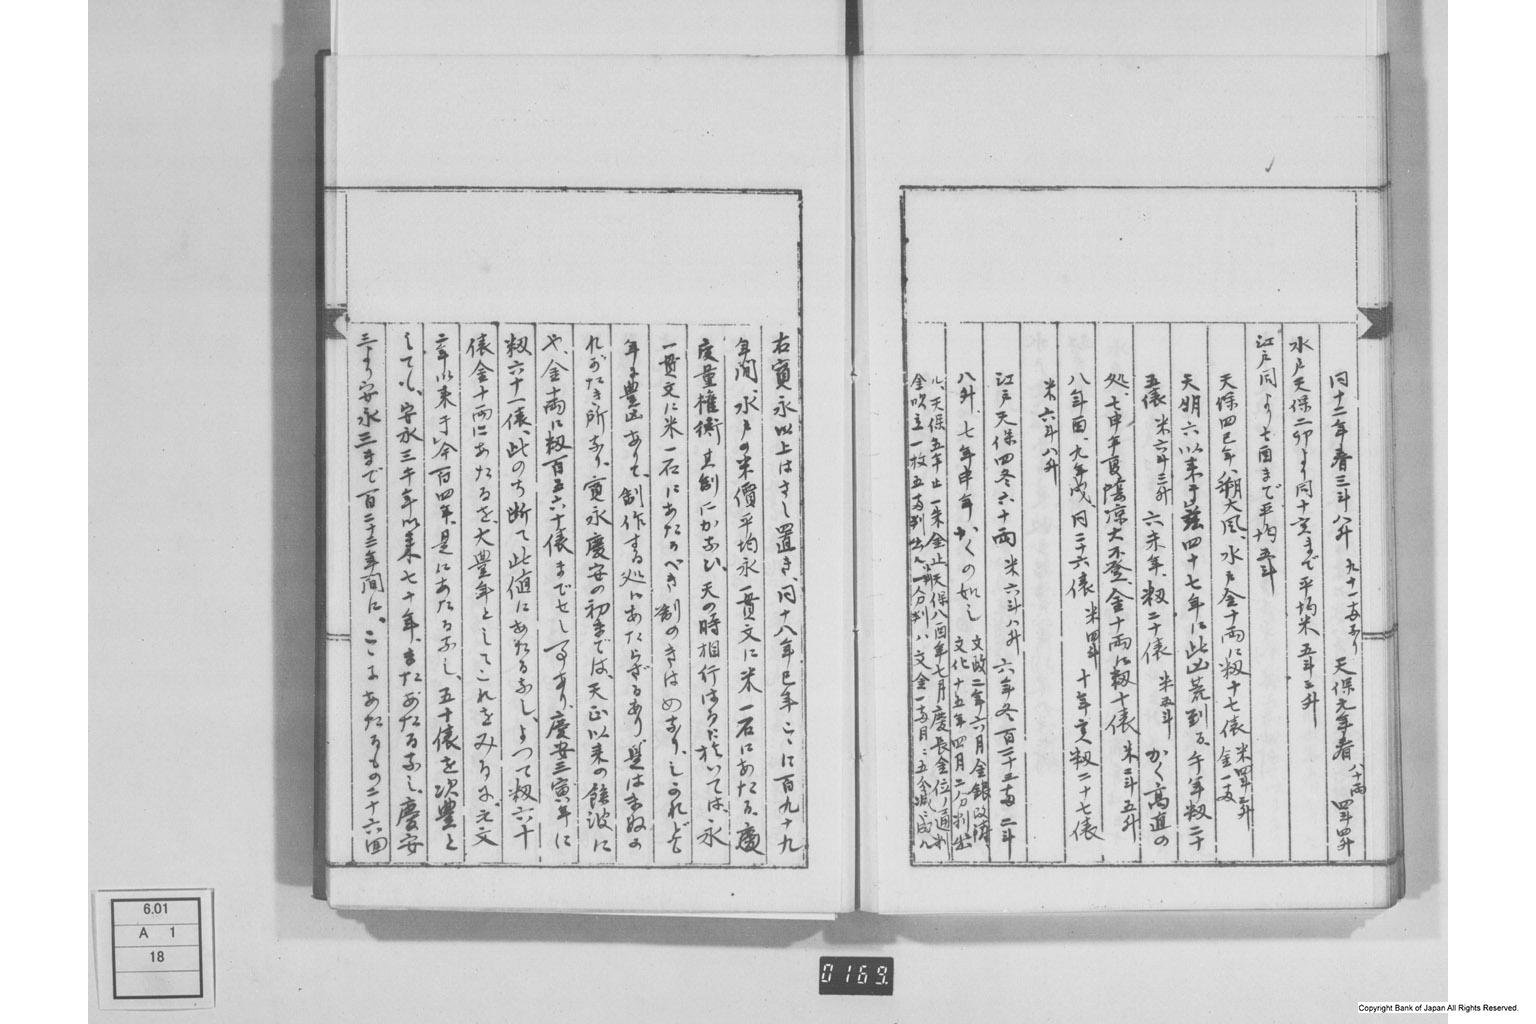 同十二年春三斗八升 九十一両なり 天保元年春 八十両 四斗四升
水戸天保二卯より同十亥まで平均米五斗二升
江戸同より七酉まで平均五斗
天保四巳年八朔大風、水戸金十両に籾十七俵 米四斗三升 金一両
天明六以来于茲四十七年に此凶荒到る、午年籾二十
五俵 米六斗三升 六未年、籾二十俵 米五斗 かく高直の
処、七申年夏陰凉大不登金十両に籾十俵 米二斗五升
八年酉、九年戌、同二十六俵 米四斗 十年亥籾二十七俵
米六斗八升
江戸天保四冬六十両 米六斗八升 六年冬百二十三両 二斗
八升、七年申年かくの如し 文政二年六月金銀改鋳 文化十五年四月二分判出
ル、天保五年止 一朱金止天保八酉年七月慶長金位ノ通
金吹立一枚五両判出 一分判ハ文金一両
右寛永以上はさし置き、同十八年巳年こゝに百九十九
年間、水戸の米價平均永一貫文に米一石にあたる、慶
度量権衡其制にかなひ、天の時相行はるゝに於いては、永
一貫文に米一石にあたるべき割のきはめなり、しかれども
年に豊凶ありて、制作する処にあたらざるあり是はまぬの
れがたき所なり、寛永慶安の初までは、天正以来の餘波に
や、金十両に籾百五六十俵までせし事あり、慶安三寅年に
籾六十一俵、此のち断て此値にあたるなし、よつて籾六十
俵金十両にあたるを、大豊年としてこれをみるに元文
二年以来于今百四年、是にあたるなし、五十俵を次豊と
しても、安永三午年以来七十年、またあたるなし、慶安
三より安永三まで百二十三年間に、こゝにあたるもの二十六回
6.01
A 1
18
0169.
Copyright Bank of Japan All Rights Reserved.